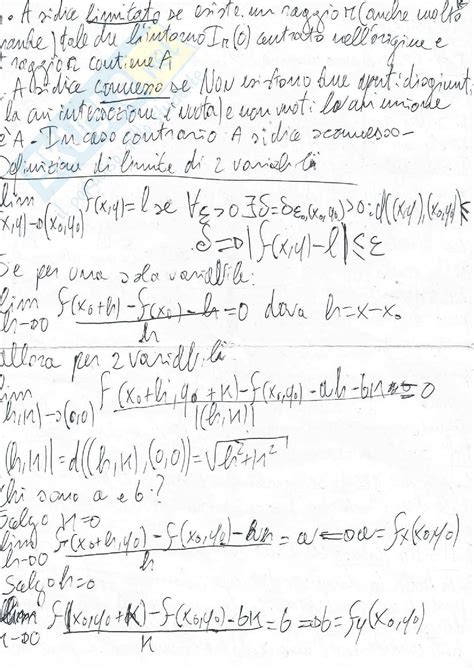 • A si dice limitato se esiste un raggio r (anche molto
grande) tale che l'intorno Ir(0) centrato nell'origine e
raggio r contiene A
. A si dice connesso se Non esistono due aperti disgiunti
(la cui intersezione è vuota) e non vuoti la cui unione
è A - In caso contrario A si dice sconnesso -
Definizione di limite di 2 variabili
lim f(x,y)=l se ∀ε>0 ∃δ=δε,(x0,y0)>0: d((x,y),(x0,y0))≤
(x,y)→(x0,y0)
δ ⇒ |f(x,y)-l|≤ε
Se per una sola variabile:
lim f(x0+h)-f(x0)-h =0 dova h=x-x0
h→0 h
allora per 2 variabili:
lim f(x0+h,y0+k)-f(x0,y0)-ah-bk = 0
(h,k)→(0,0) |(h,k)|
|(h,k)|=d((h,k),(0,0))=√h²+k²
Chi sono a e b?
Scelgo k=0
lim f(x0+h,y0)-f(x0,y0)-ah = a ⇒ a=fx(x0,y0)
h→0 h
Scelgo h=0
lim f(x0,y0+k)-f(x0,y0)-bk = b ⇒ b=fy(x0,y0)
k→0 k